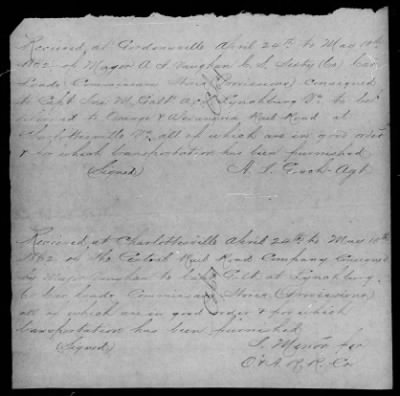 Received, at Gordonsville April 24th to May 10th
1862 of Major A. S. Vaughan C. S. Sixty (60) Car
Loads Commissary Stores (Provisions) Consigned
to Capt Jas M. Galt A. C. S. Lynchburg Va to be
delivered to Orange & Alexandria Rail Road at
Charlottesville Va, all of which are in good order
& for which transportation has been furnished
(Signed) H. S. Agt
Copy
Received, at Charlottesville April 24th to May 10th,
1862, of the Central Rail Road Company Consigned
by Major Vaughan to Capt Galt at Lynchburg,
60 Car loads Commissary Stores (Provisions)
all of which are in good order & for which
transportation has been furnished
(Signed) S. Minor for
O & A. R. R. Co
Copy